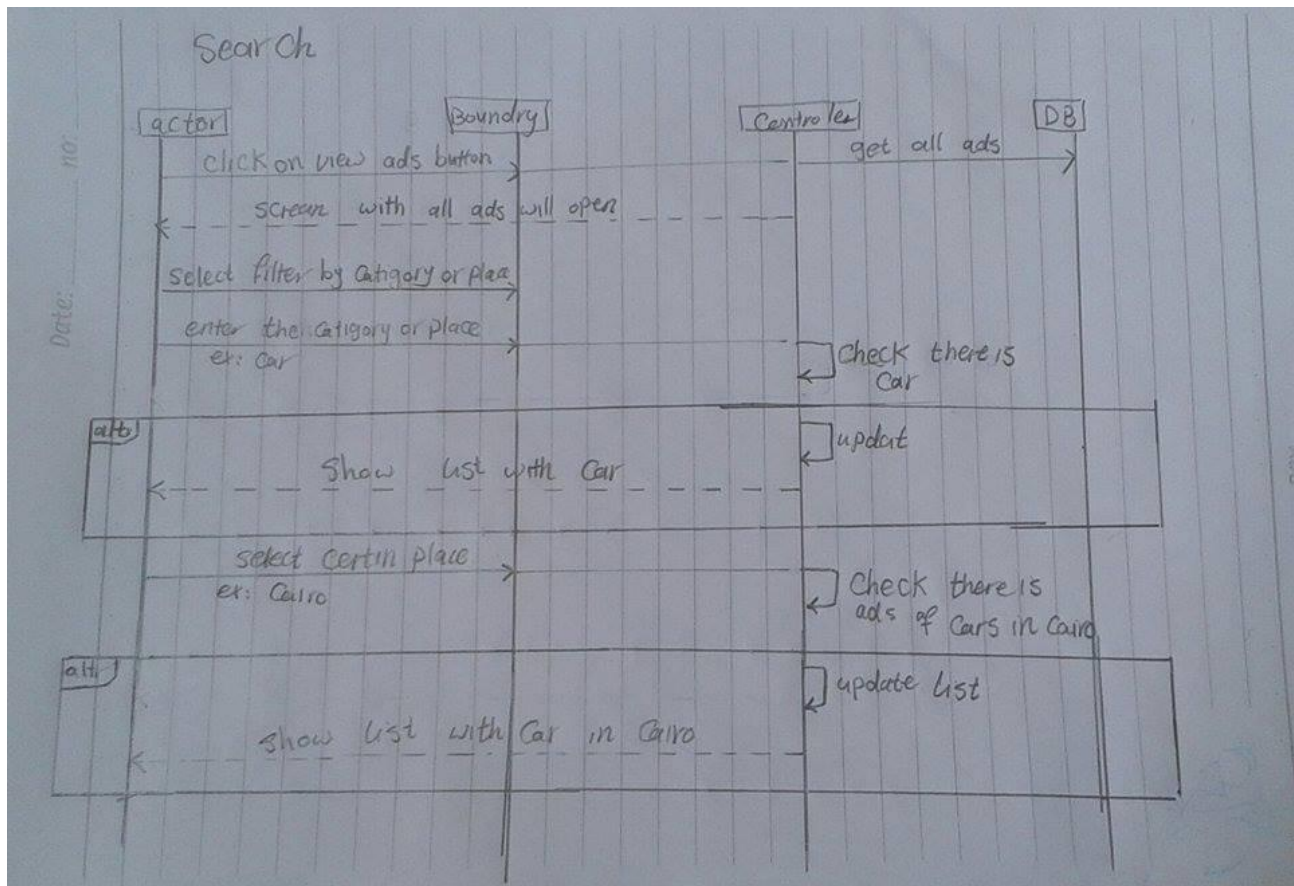 Search
actor
Boundry
Controler
DB
click on view ads button
get all ads
screan with all ads will open
select filter by catigory or place
enter the catigory or place
ex: Car
Check there is
Car
alt
updat
Show list with Car
select certin place
ex: Cairo
Check there is
ads of Cars in Cairo
alt
update list
show list with Car in Cairo
Date:
no: